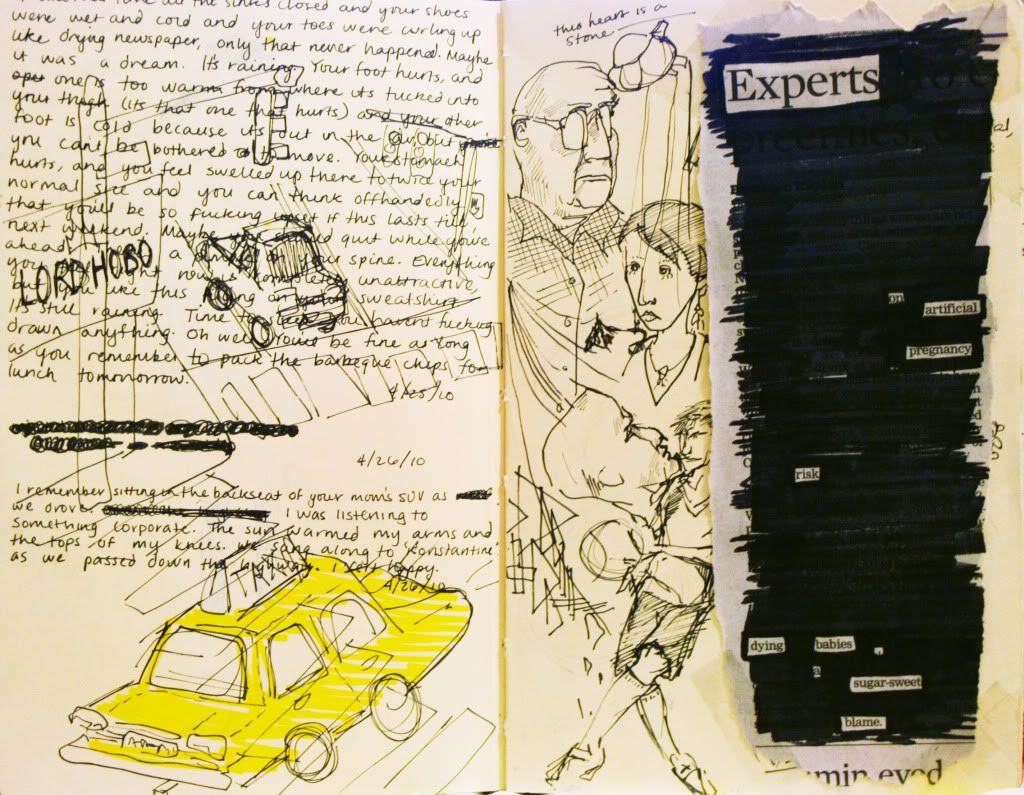 all the sinks closed and your shoes
were wet and cold and your toes were curling up
like drying newspaper, only that never happened. Maybe
it was a dream. It's raining. Your foot hurts, and
one is too warm from where its tucked into
your thigh (its that one that hurts) and your other
foot is cold because its out in the air, but
you cant be bothered to move. Your stomach
hurts, and you feel swelled up there to twice your
normal size and you can think offhandedly
that you'll be so fucking upset if this lasts till
next weekend. Maybe quit while you're
ahead. a your spine. Everything
you right now is unattractive,
LORD HOBO
but you like this sweatshirt
Its still raining. Time to you haven't fucking
drawn anything. Oh well. You'll be fine as long
as you remember to pack the barbeque chips for
lunch tommorrow.
4/25/10
4/26/10
I remember sitting in the backseat of your mom's SUV as
we drove. I was listening to
Something Corporate. The sun warmed my arms and
the tops of my knees. We sang along to "Konstantine"
as we passed down the highway. I felt happy.
4/26/10
thine heart is a
stone
Experts
on
artificial
pregnancy
risk
dying babies ,
a
sugar-sweet
blame.